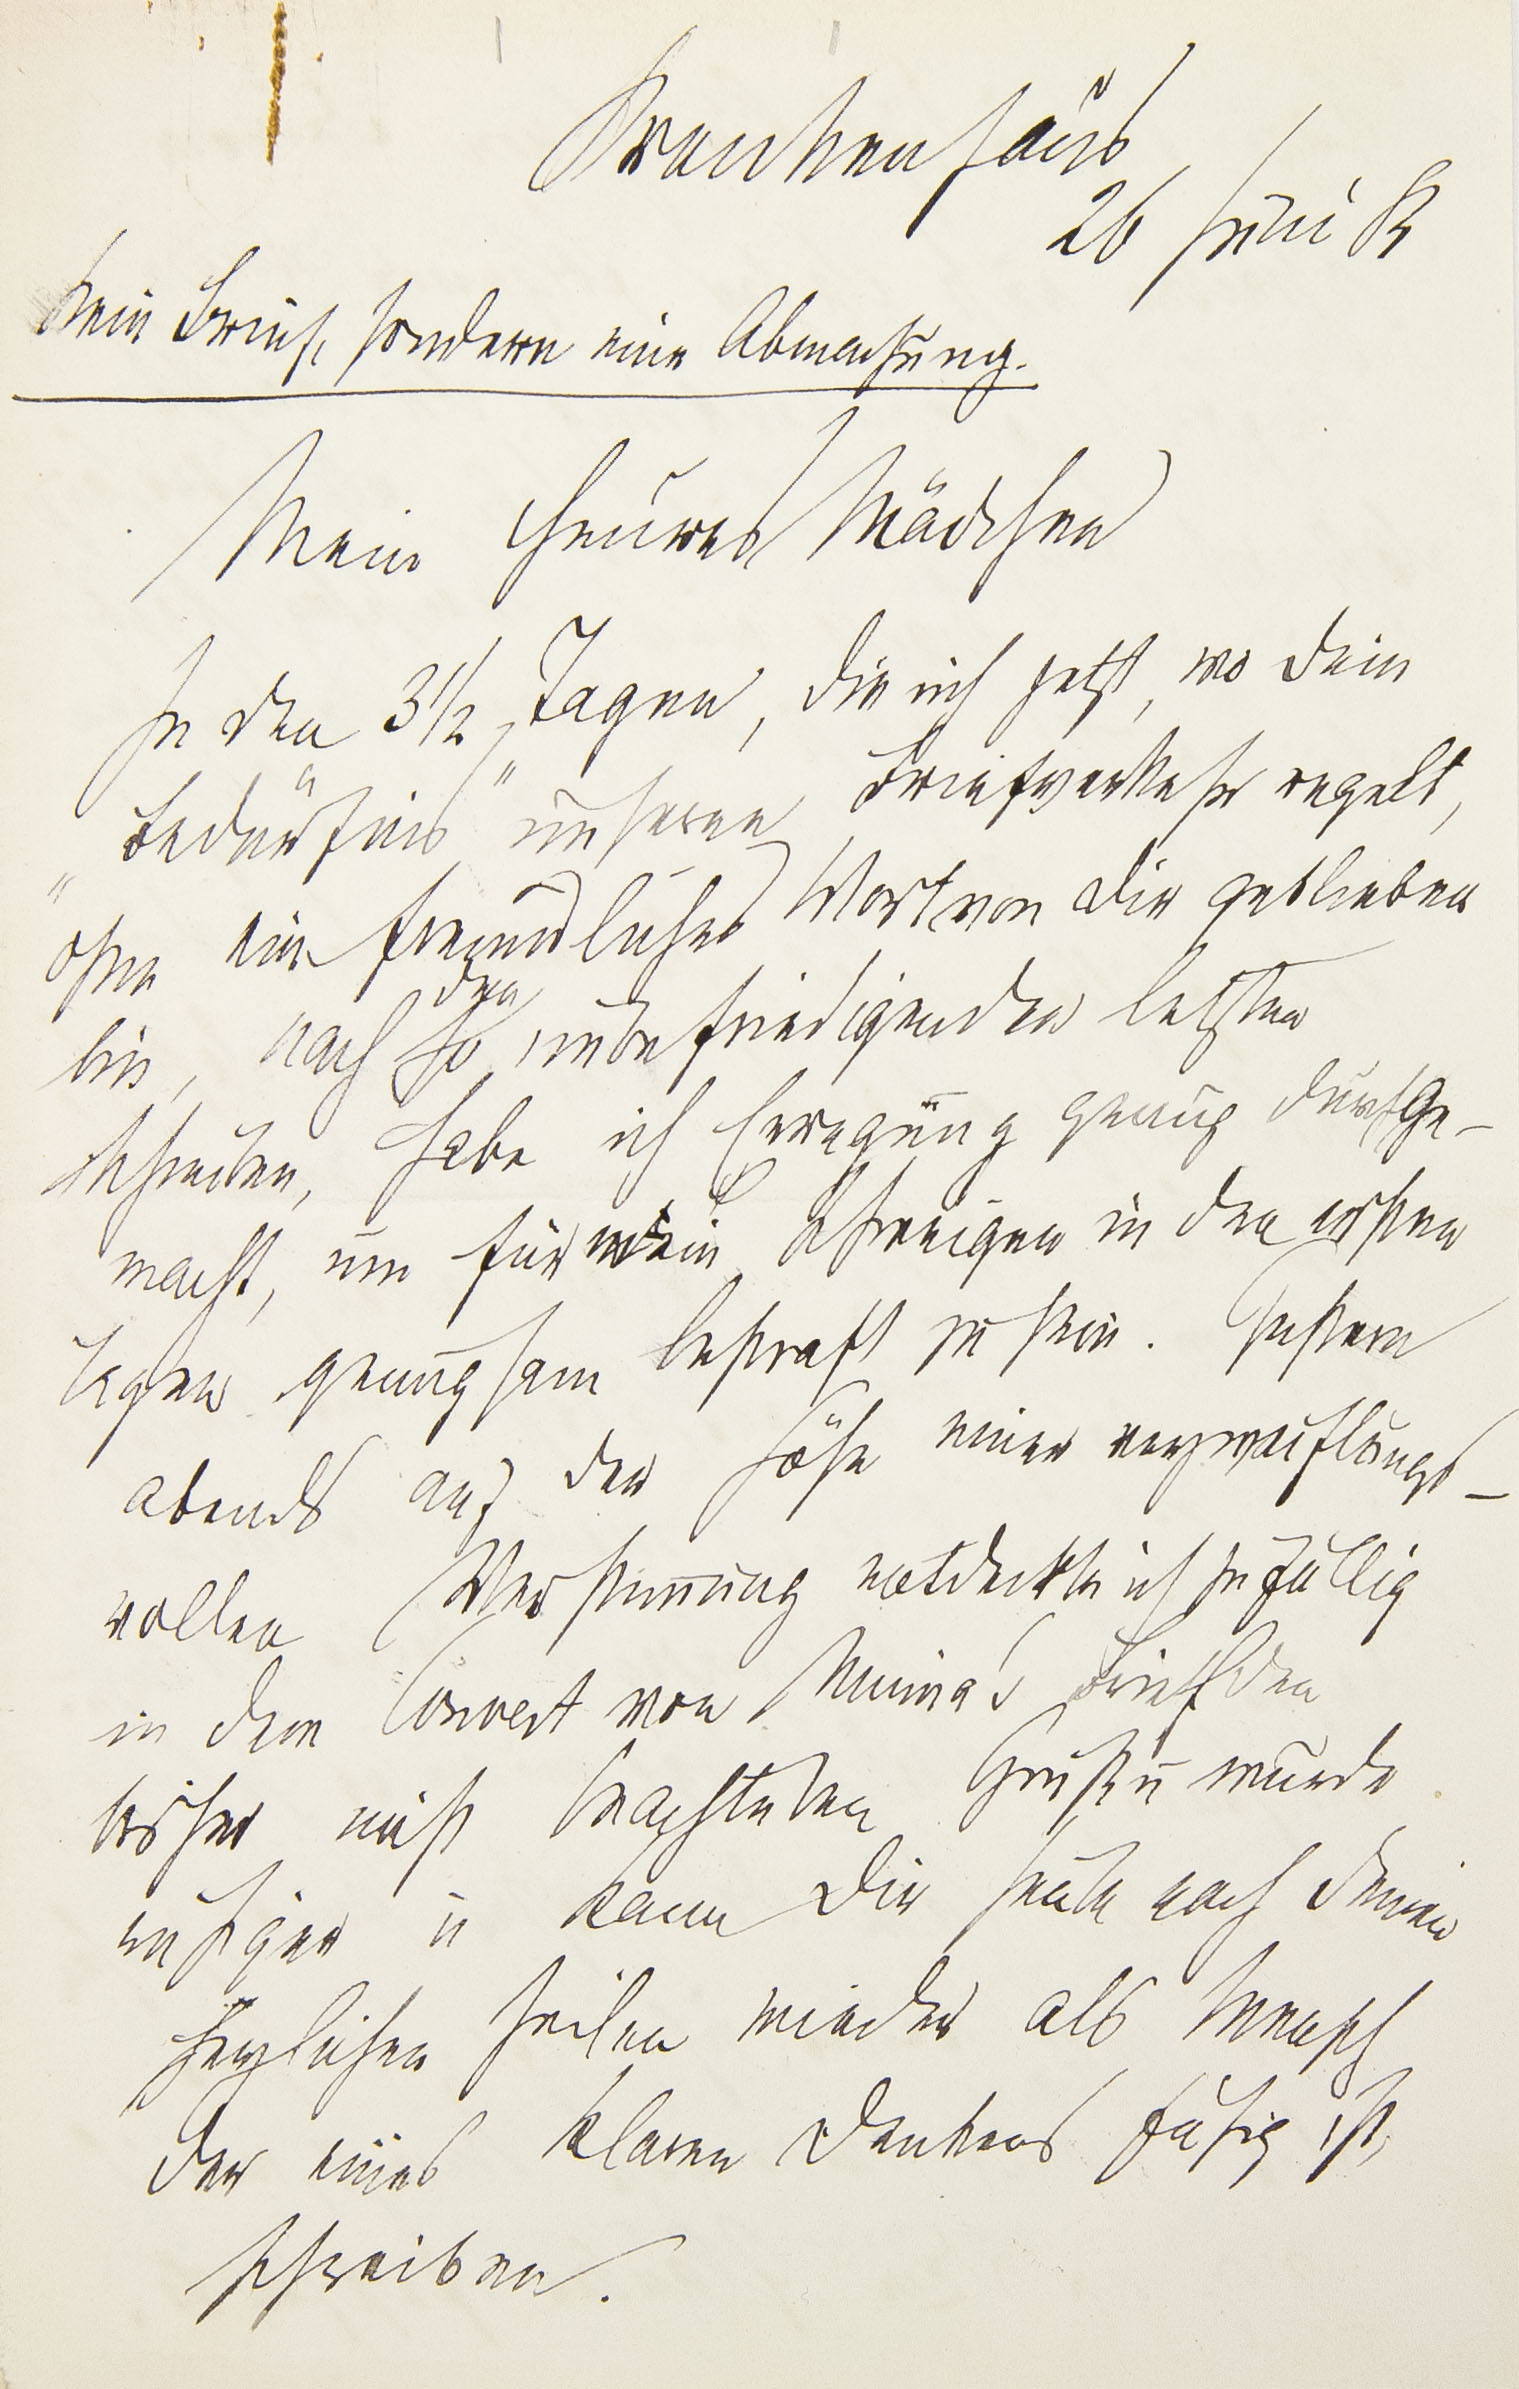 Krankenhaus
26 Juni 85
Kein Brief, sondern eine Abmachung.
Mein theures Mädchen
In den 3 1/2 Tagen, die ich jetzt, wo Dein
„Bedürfnis“ unseren Briefverkehr regelt,
ohne ein freundliches Wort von Dir geblieben
bin, nach den so unbefriedigenden letzten
Schreiben, habe ich Erregung genug durchge-
macht, um für mein Schweigen in den ersten
Tagen genugsam bestraft zu sein. Gestern
abends auf der Höhe einer verzweiflungs-
vollen Verstimmung entdeckte ich zufällig
in dem Couvert von Minna's Brief den
bisher nicht beachteten Gruß u wurde
ruhiger u kann Dir heute nach Deinen
herzlichen Zeilen wieder als Mensch
der eines klaren Denkens fähig ist,
schreiben.